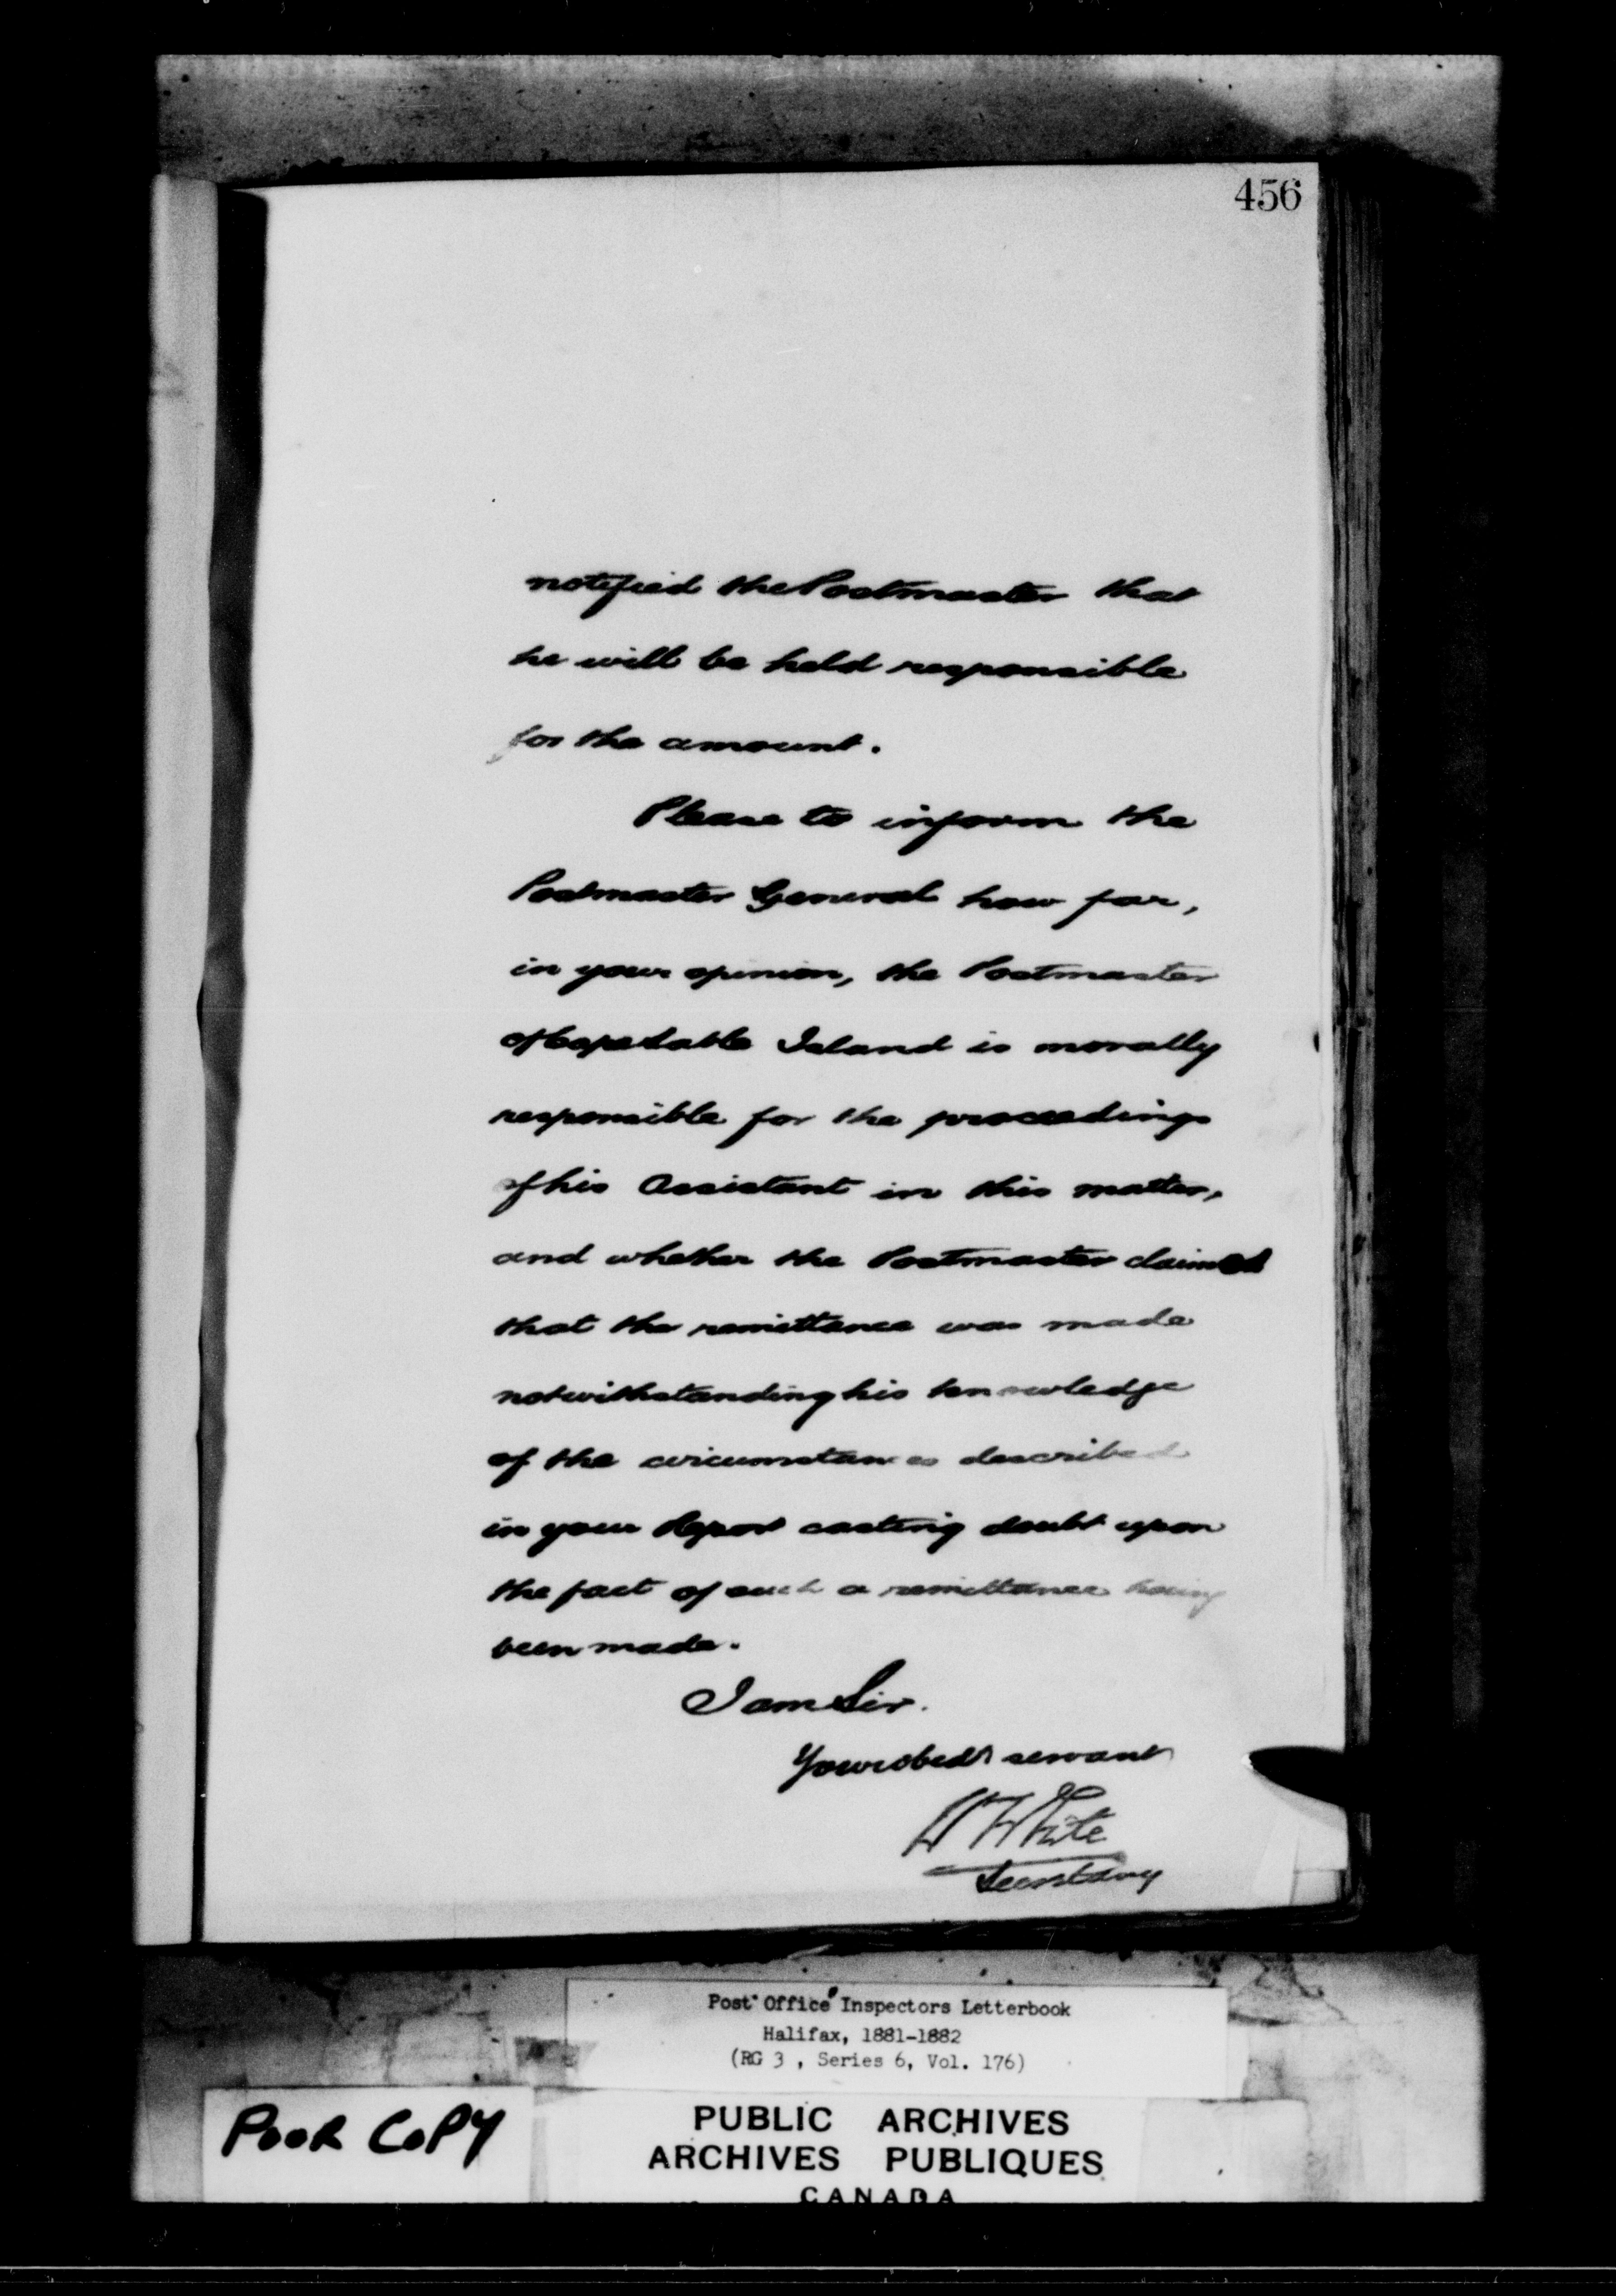 456
notified the Postmaster that
he will be held responsible
for the amount.
Please to inform the
Postmaster General how far,
in your opinion, the Postmaster
of Cape Sable Island is morally
responsible for the proceedings
of his Assistant in this matter,
and whether the Postmaster claimed
that the remittance was made
notwithstanding his knowledge
of the circumstances described
in your Report casting doubt upon
the fact of such a remittance having
been made.
I am Sir.
Your obedt servant
W White
Secretary
Post Office Inspectors Letterbook
Halifax, 1881-1882
(RG 3 , Series 6, Vol. 176)
POOR COPY
PUBLIC ARCHIVES
ARCHIVES PUBLIQUES
CANADA